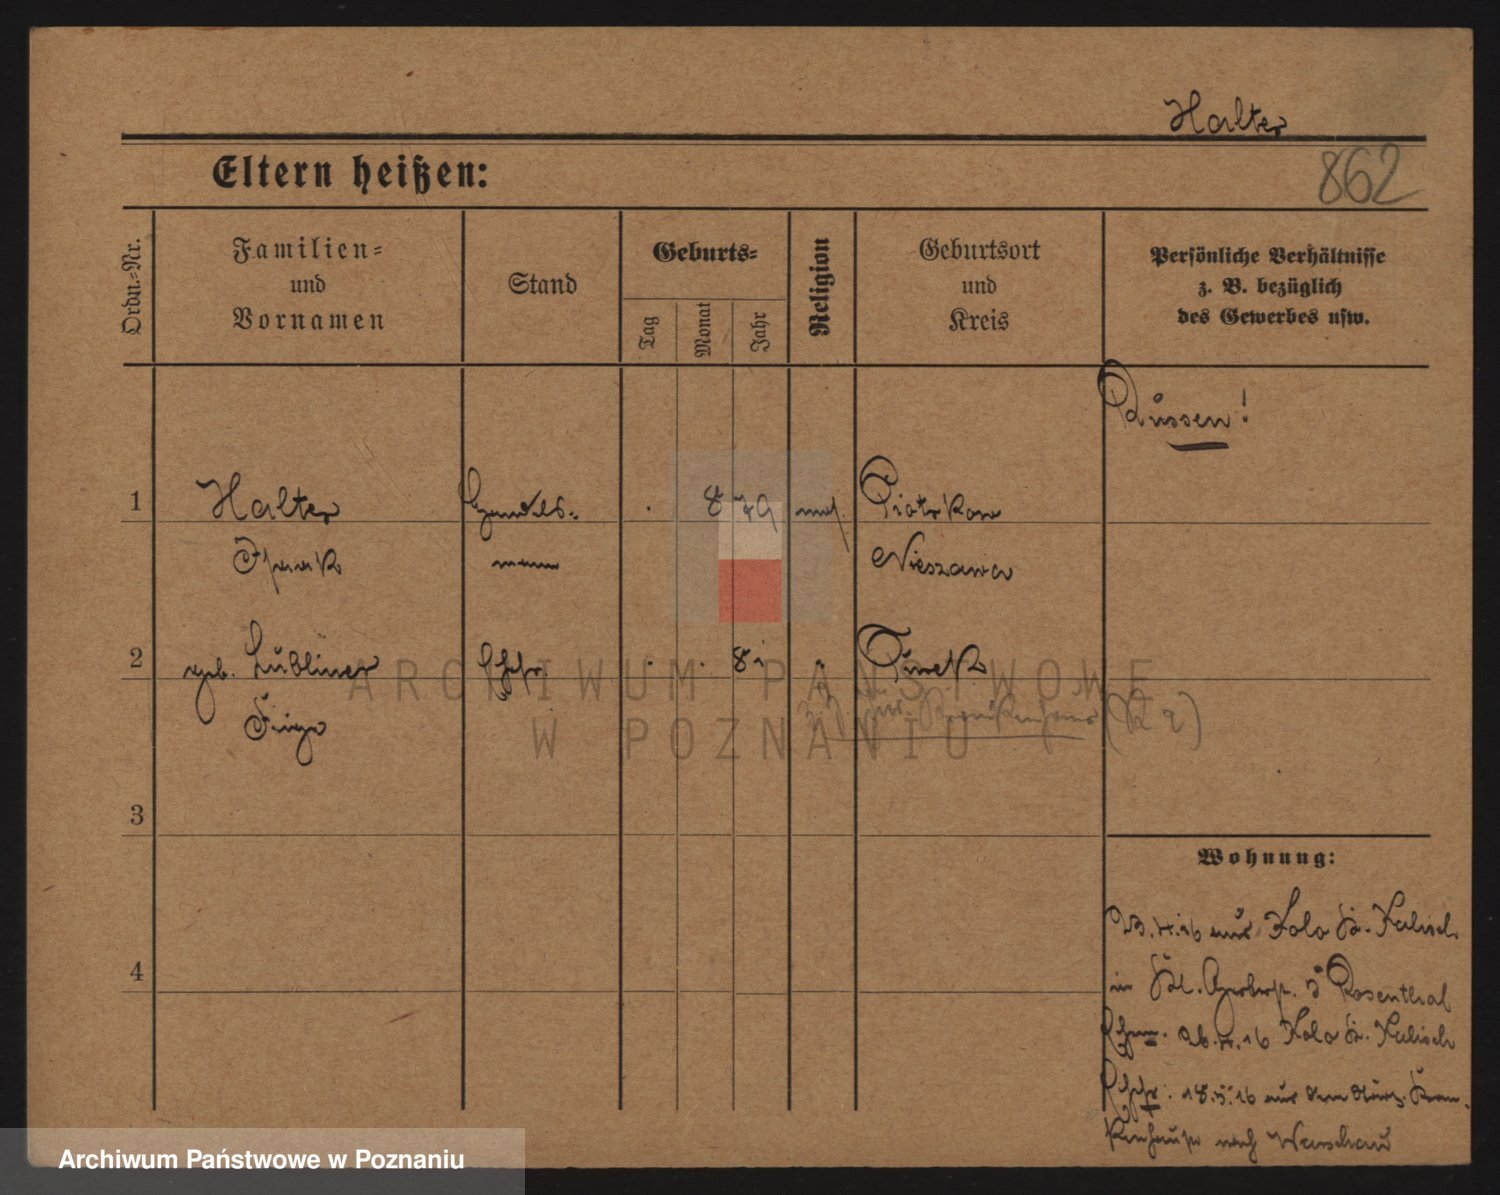 Halter
Eltern heißen:
862
Ordn.-Nr.
Familien-
und
Vornamen
Stand
Geburts-
Tag
Monat
Jahr
Religion
Geburtsort
und
Kreis
Persönliche Verhältnisse
z. B. bezüglich
des Gewerbes usw.
Russen!
1
Halter
Handels-
8 79
mos.
Piotrkow
Isaak
mann
Nieszawa
2
geb. Lubliner
Ehefr.
81
"
Turek
Faiga
3
Wohnung:
23.4.16 aus Kolo K. Kalisch
4
in Kl. Gerberstr. 3 Rosenthal
Ehem. 26.4.16 Kolo K. Kalisch
Ehefr. 18.5.16 aus dem städt. Kran-
kenhause nach Warschau
ARCHIWUM PAŃSTWOWE
W POZNANIU
Archiwum Państwowe w Poznaniu